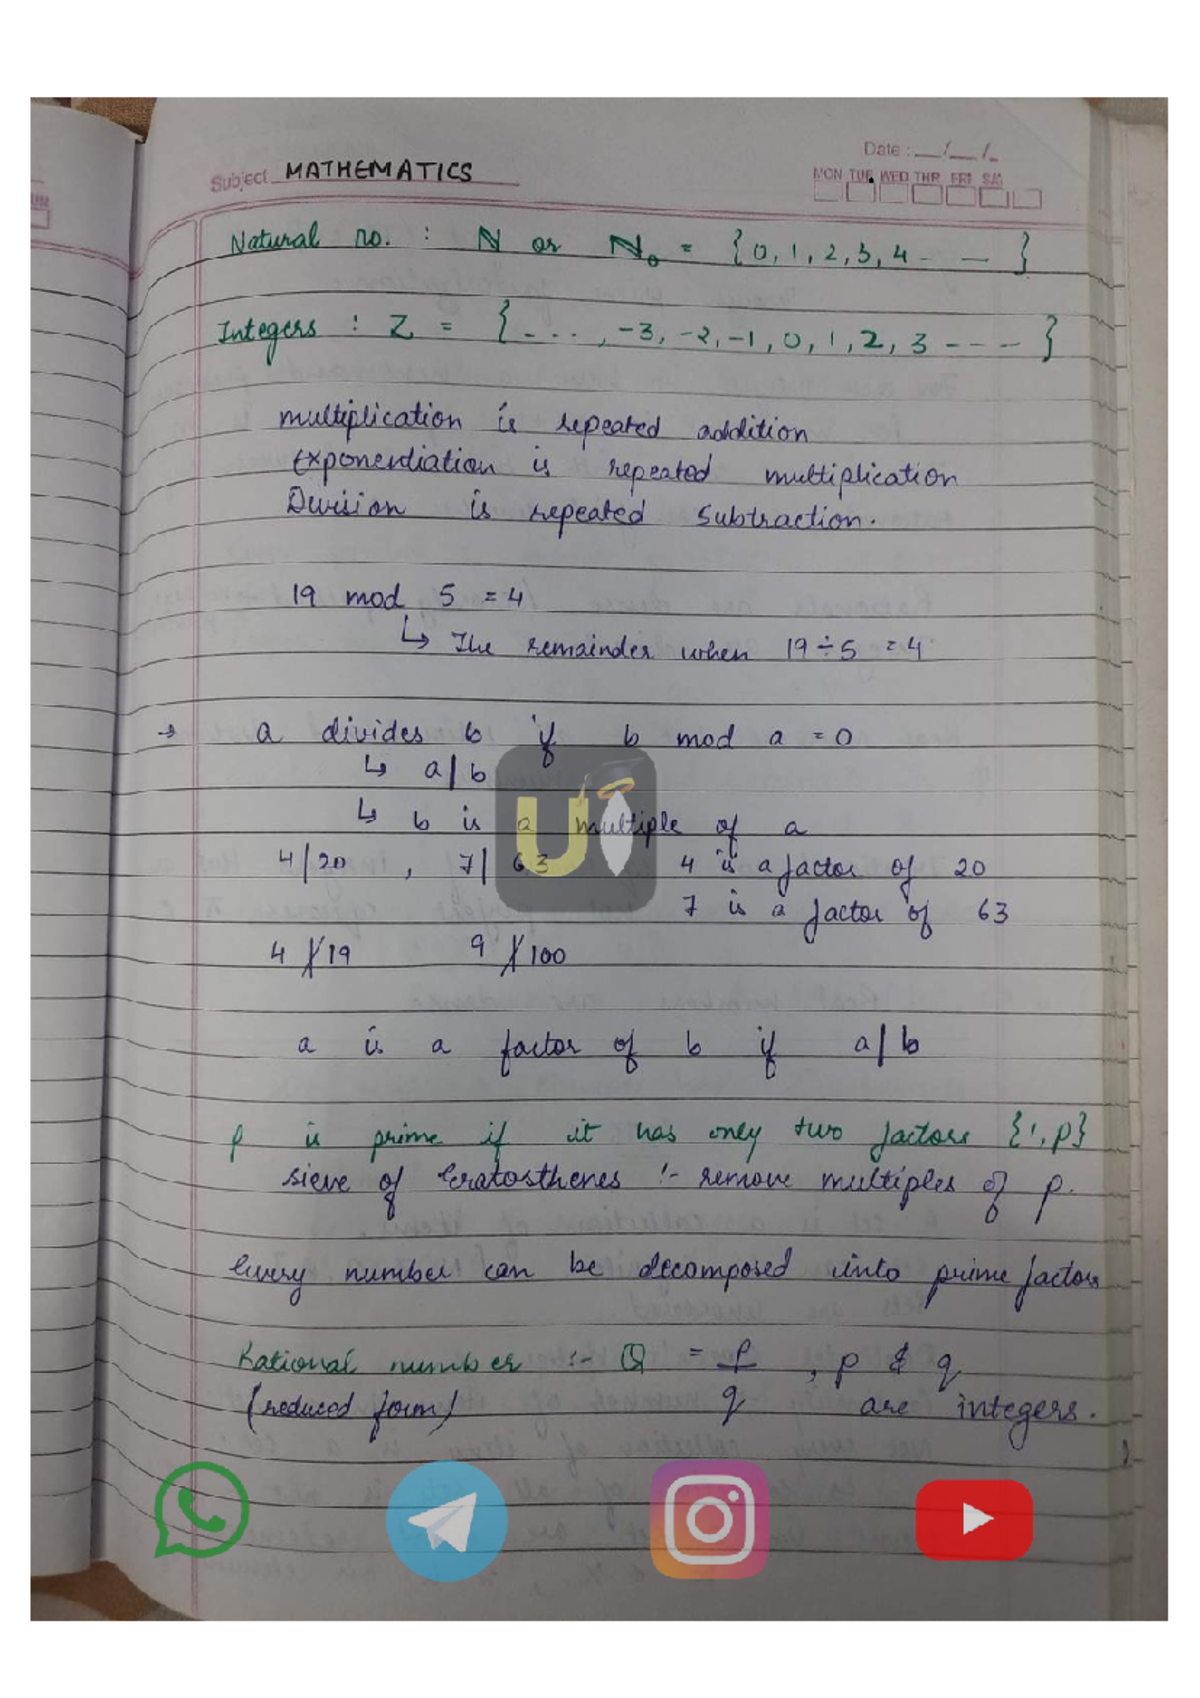 Date : __/__/_
Subject MATHEMATICS
MON TUE WED THR FRI SAT
Natural no. : N or N₀ = {0, 1, 2, 3, 4 - - — }
Integers : Z = { - - - , -3, -2, -1, 0, 1, 2, 3 - - - }
multiplication is repeated addition
Exponentiation is repeated multiplication
Division is repeated subtraction.
19 mod 5 = 4
↳ The remainder when 19 ÷ 5 = 4
→ a divides b if b mod a = 0
↳ a | b
↳ b is a multiple of a
4 | 20 , 7 | 63 4 is a factor of 20
7 is a factor of 63
4 ∤ 19 9 ∤ 100
a is a factor of b if a | b
p is prime if it has only two factors {1, p}
sieve of Eratosthenes :- remove multiples of p.
Every number can be decomposed into prime factors
Rational number :- Q = p/q , p & q
(reduced form) are integers.